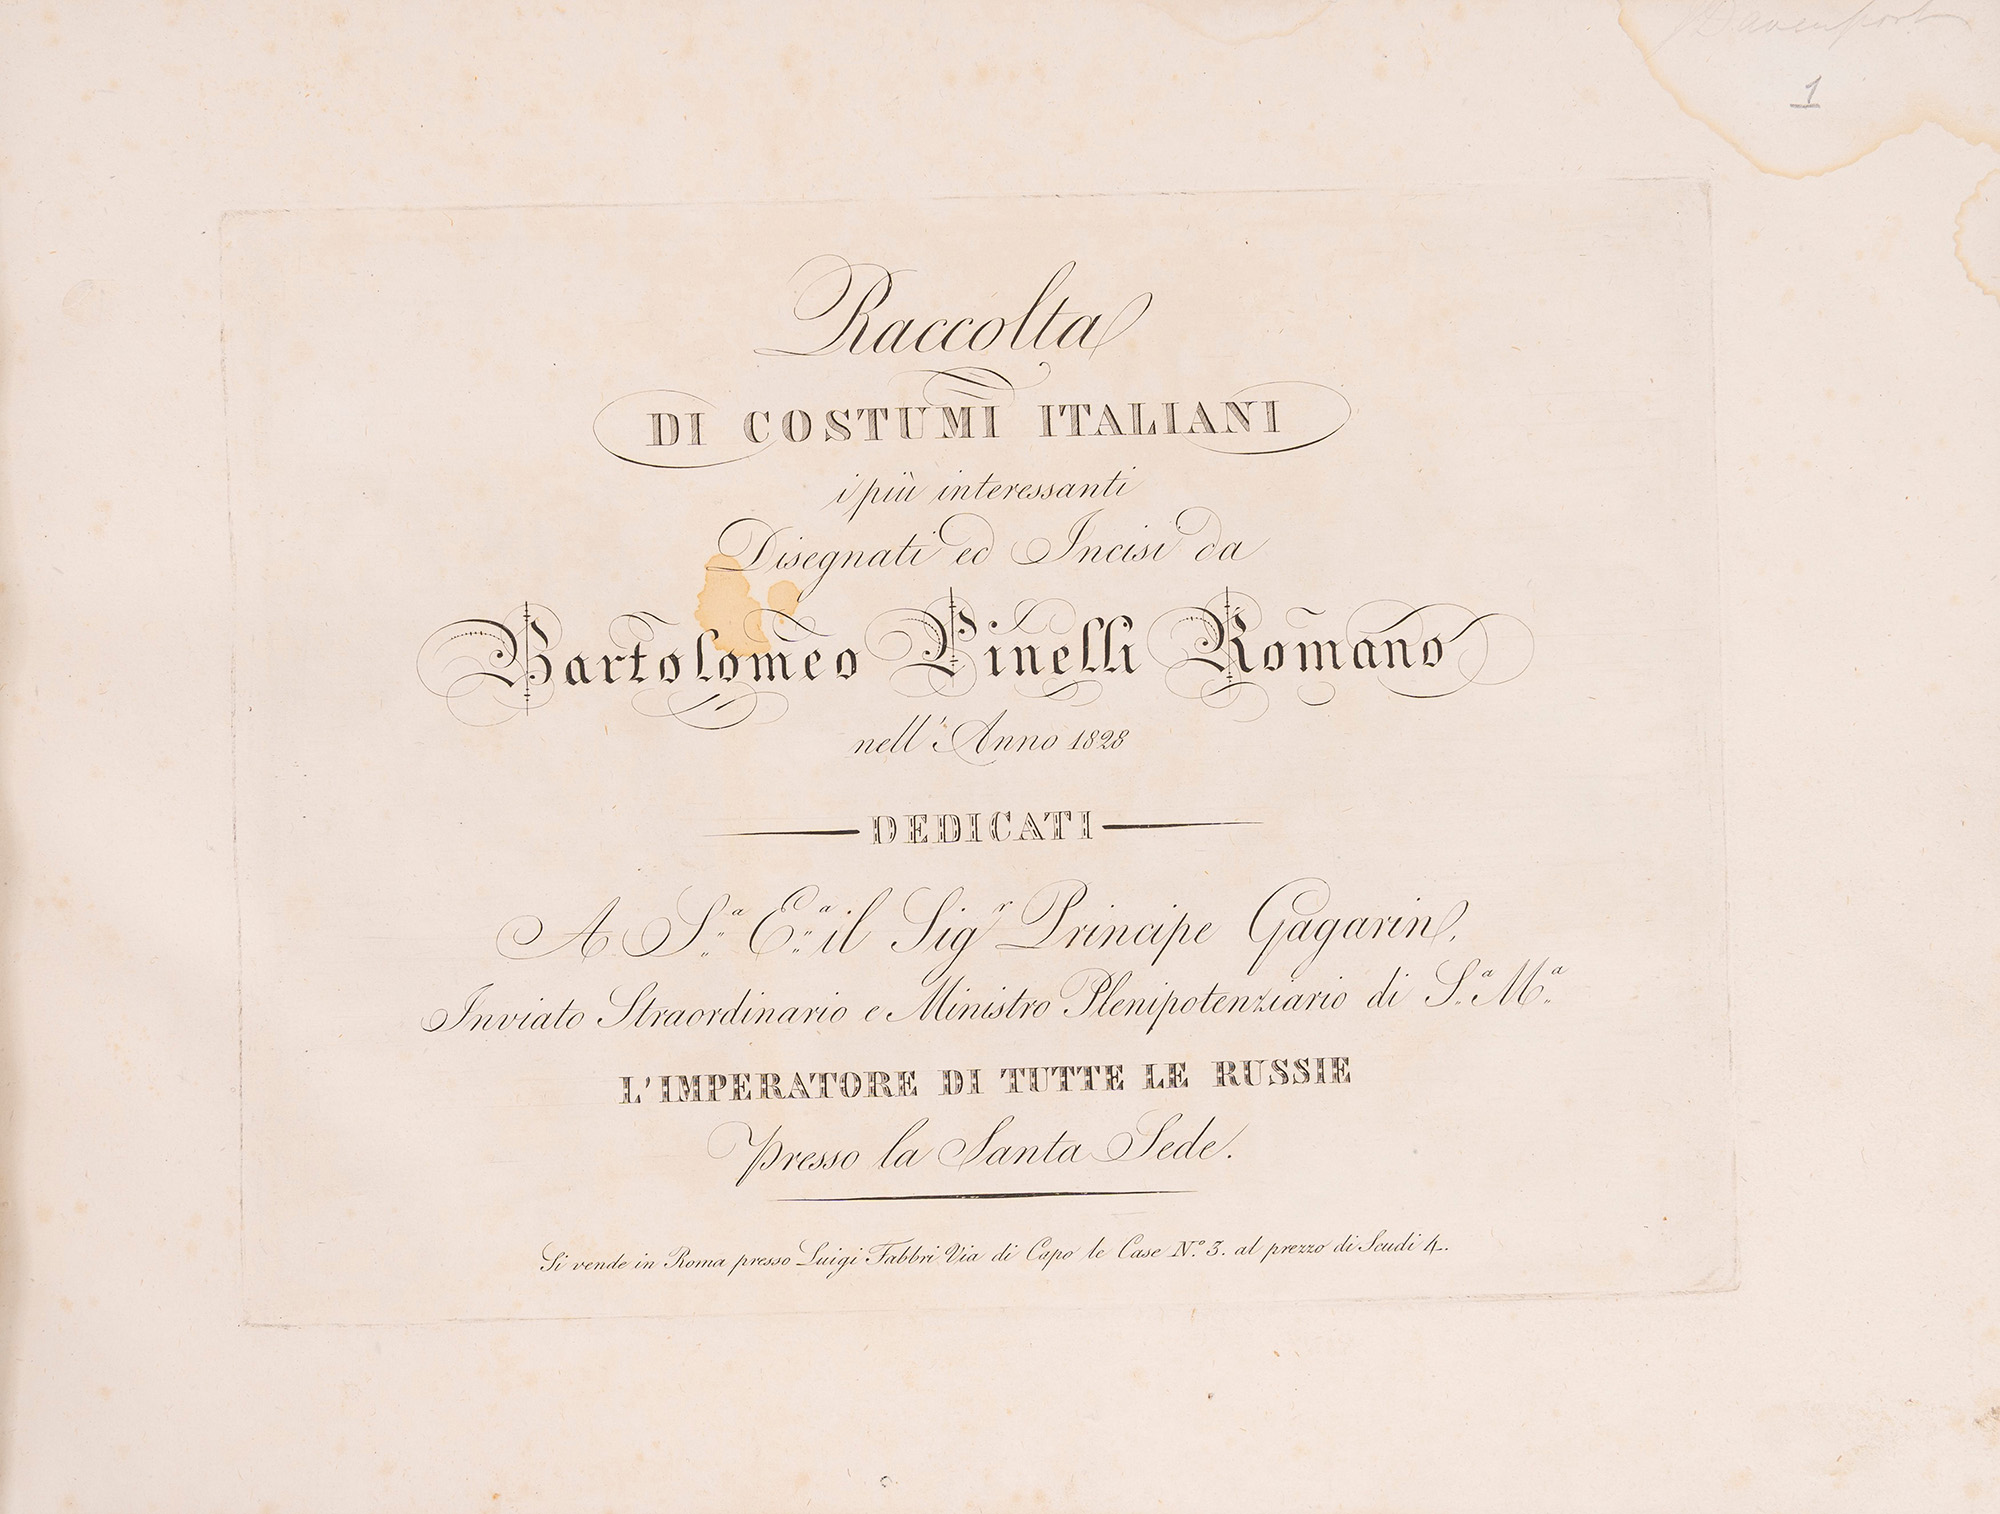 Davenport
1
Raccolta
DI COSTUMI ITALIANI
i più interessanti
Disegnati ed Incisi da
Bartolomeo Pinelli Romano
nell'Anno 1828
DEDICATI
A S.ª E.ª il Sig.r Principe Gagarin,
Inviato Straordinario e Ministro Plenipotenziario di S.ª M.ª
L'IMPERATORE DI TUTTE LE RUSSIE
Presso la Santa Sede.
Si vende in Roma presso Luigi Fabbri Via di Capo le Case N.º 3. al prezzo di Scudi 4.